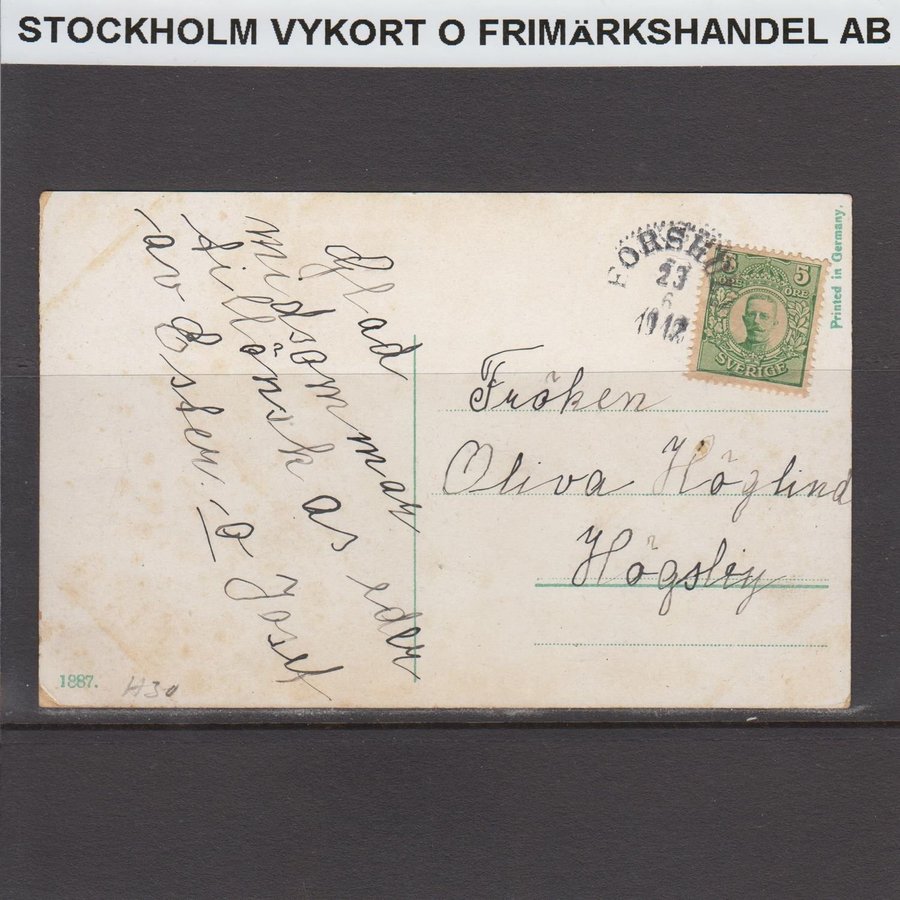 STOCKHOLM VYKORT O FRIMÄRKSHANDEL AB
Printed in Germany.
23
6
1912
5 5
ÖRE
SVERIGE
Glad
midsommar
tillönskas eder
av Ester. o Josef
Fröken
Oliva Höglind
Högsby
1887.
H30